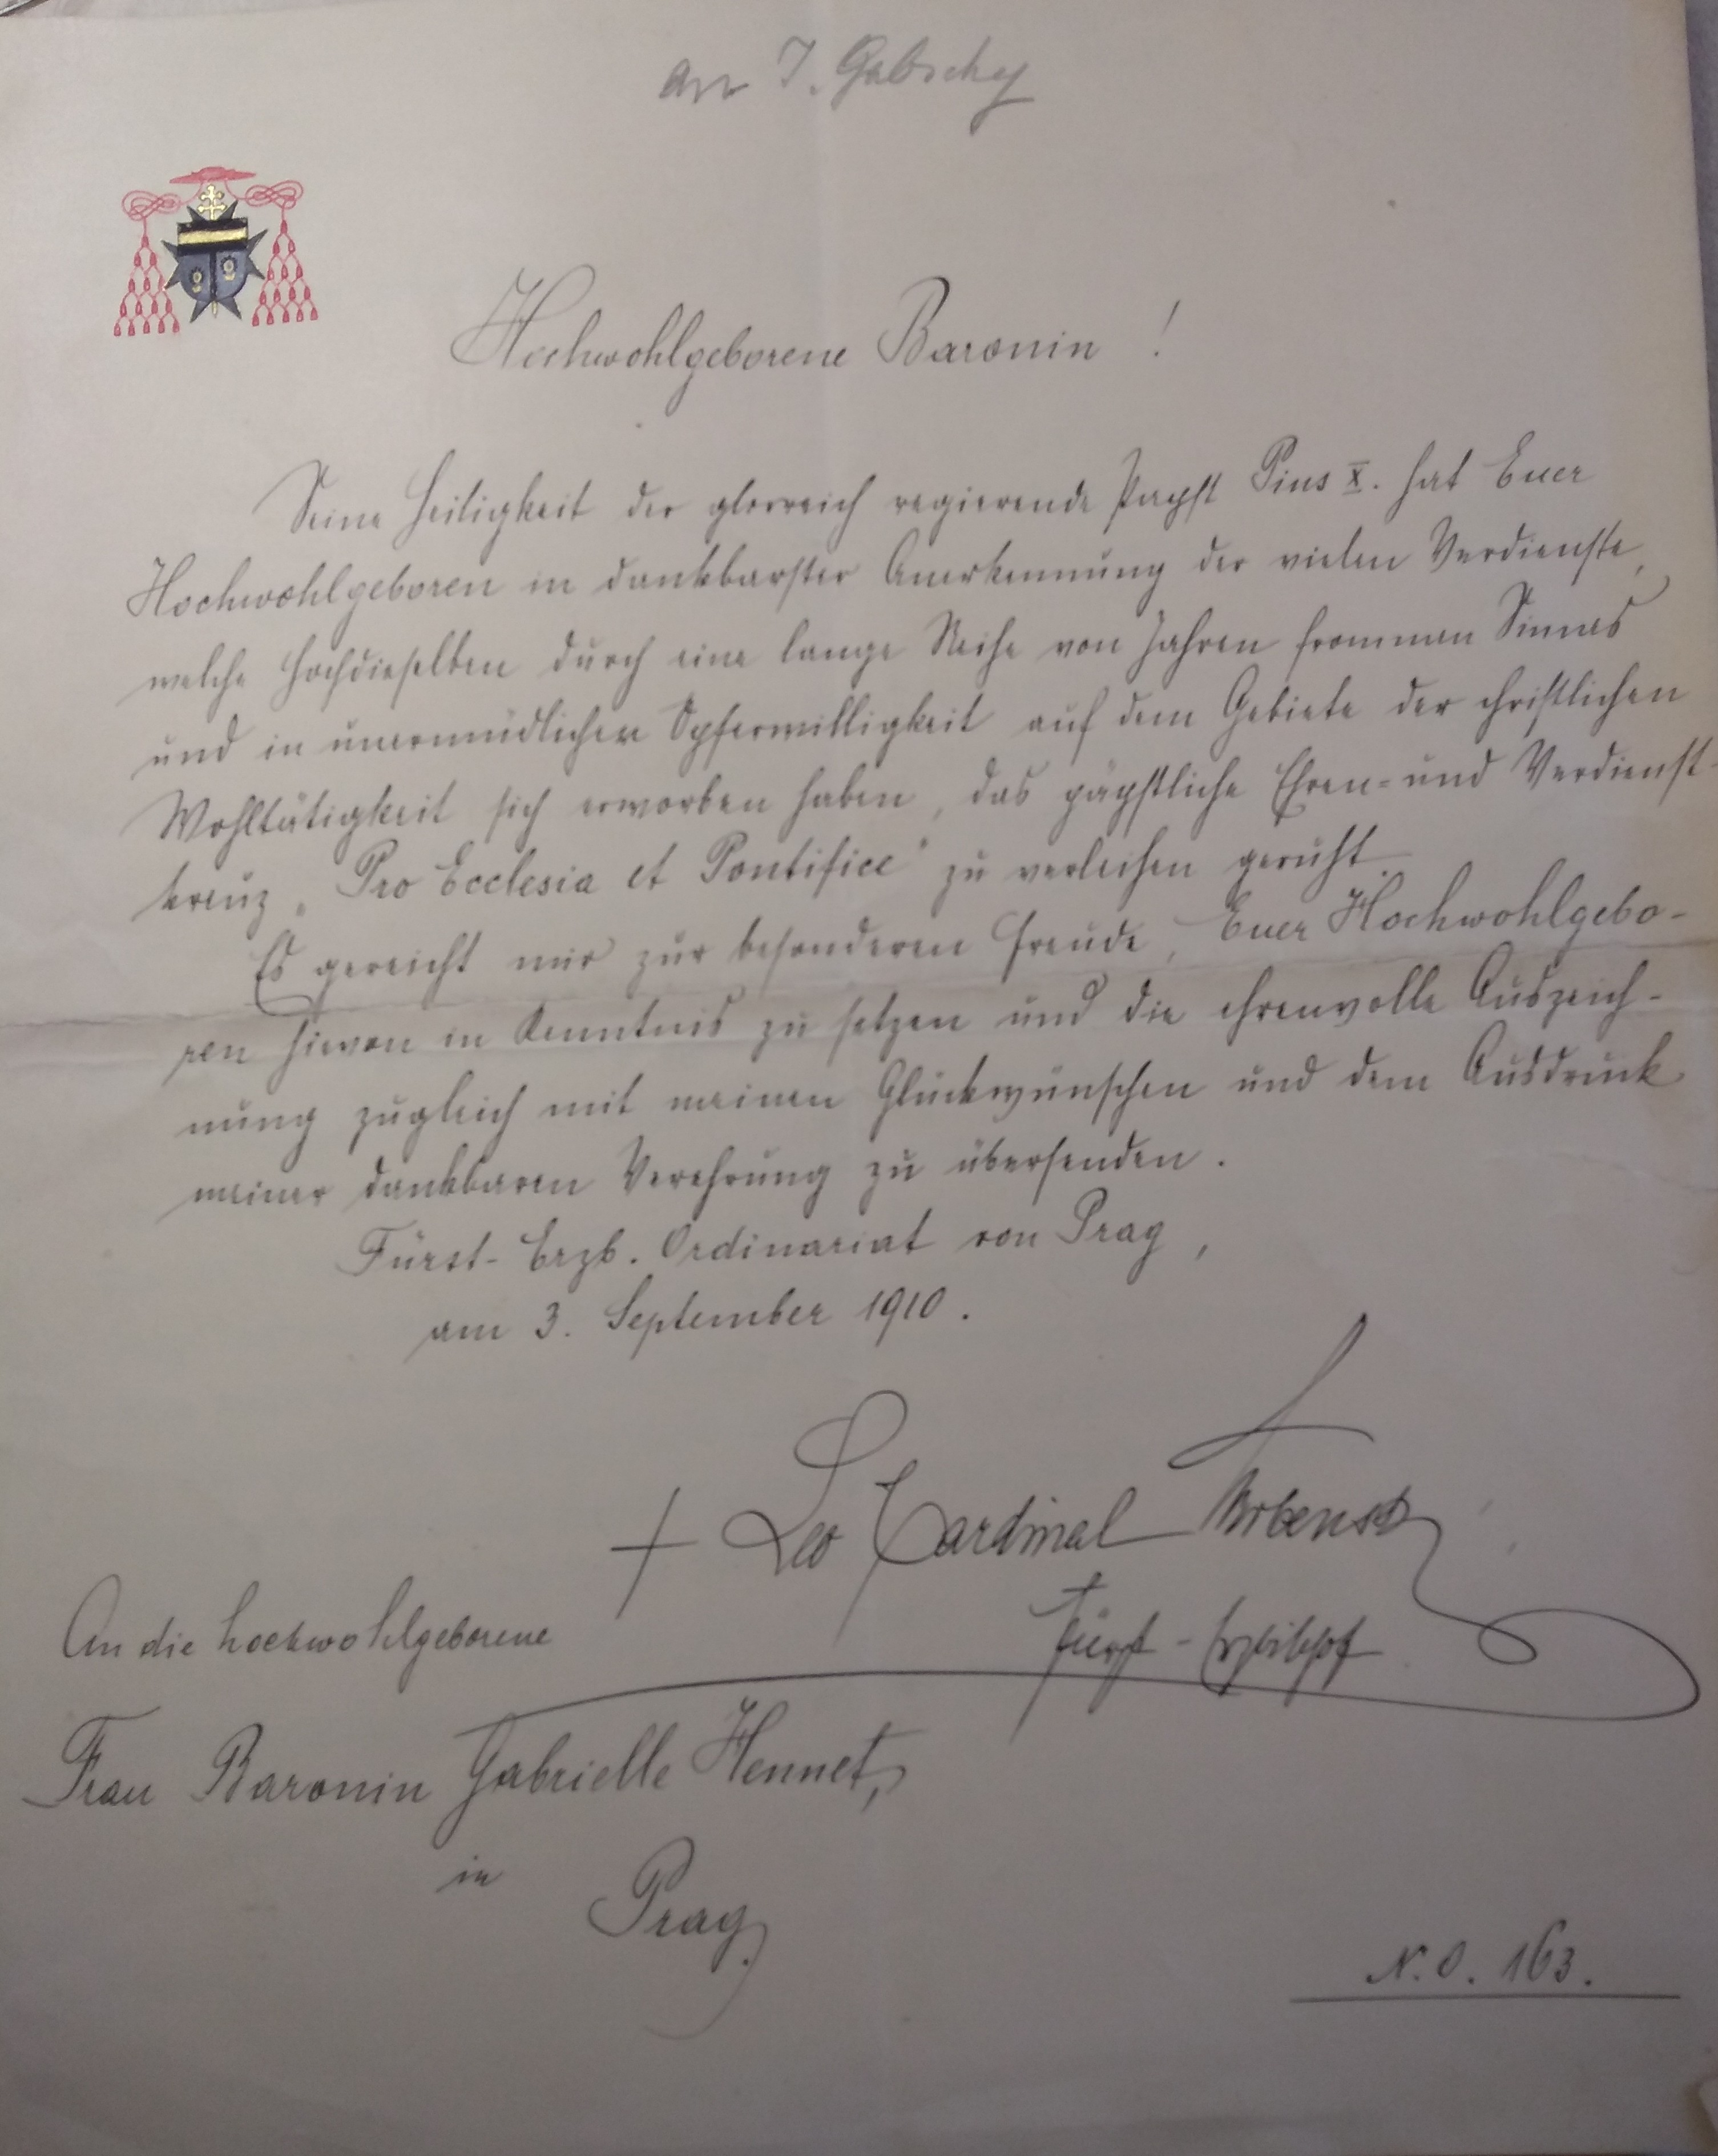 an J. Gabschy
Hochwohlgeborene Baronin !
Seine Heiligkeit der glorreich regierende Papst Pius X. hat Euer
Hochwohlgeboren in dankbarster Anerkennung der vielen Verdienste,
welche Hochdieselben durch eine lange Reihe von Jahren frommen Sinnes
und in unermüdlicher Opferwilligkeit auf dem Gebiete der christlichen
Wohltätigkeit sich erworben haben, das päpstliche Ehren- und Verdienst-
kreuz „Pro Ecclesia et Pontifice" zu verleihen geruht.
Es gereicht mir zur besonderen Freude, Euer Hochwohlgebo-
ren hievon in Kenntnis zu setzen und die ehrenvolle Auszeich-
nung zugleich mit meinen Glückwünschen und dem Ausdruck
meiner dankbaren Verehrung zu übersenden.
Fürst-Erzb. Ordinariat von Prag,
am 3. September 1910.
+ Leo Cardinal Skrbensky
Fürst-Erzbischof
An die hochwohlgeborene
Frau Baronin Gabrielle Hennet,
in
Prag.
N.O. 163.